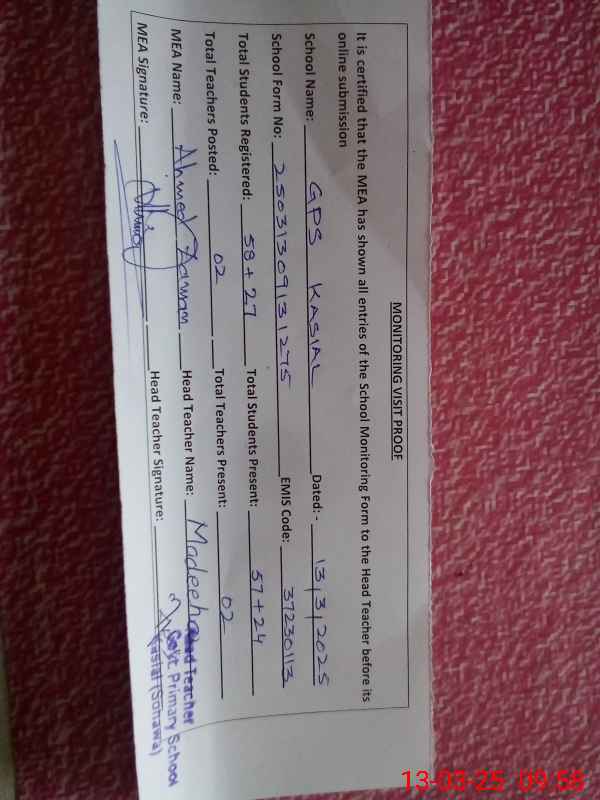 MONITORING VISIT PROOF
It is certified that the MEA has shown all entries of the School Monitoring Form to the Head Teacher before its
online submission
School Name: GPS KASIAL Dated: - 13/3/2025
School Form No: 2503130913 1275 EMIS Code: 37230113
Total Students Registered: 58+27 Total Students Present: 57+24
Total Teachers Posted: 02 Total Teachers Present: 02
MEA Name: Ahmed Awan Head Teacher Name: Madeeha
MEA Signature: Head Teacher Signature:
Head Teacher
Govt Primary School
Kasial (Sohawa)
13-03-25 09:58